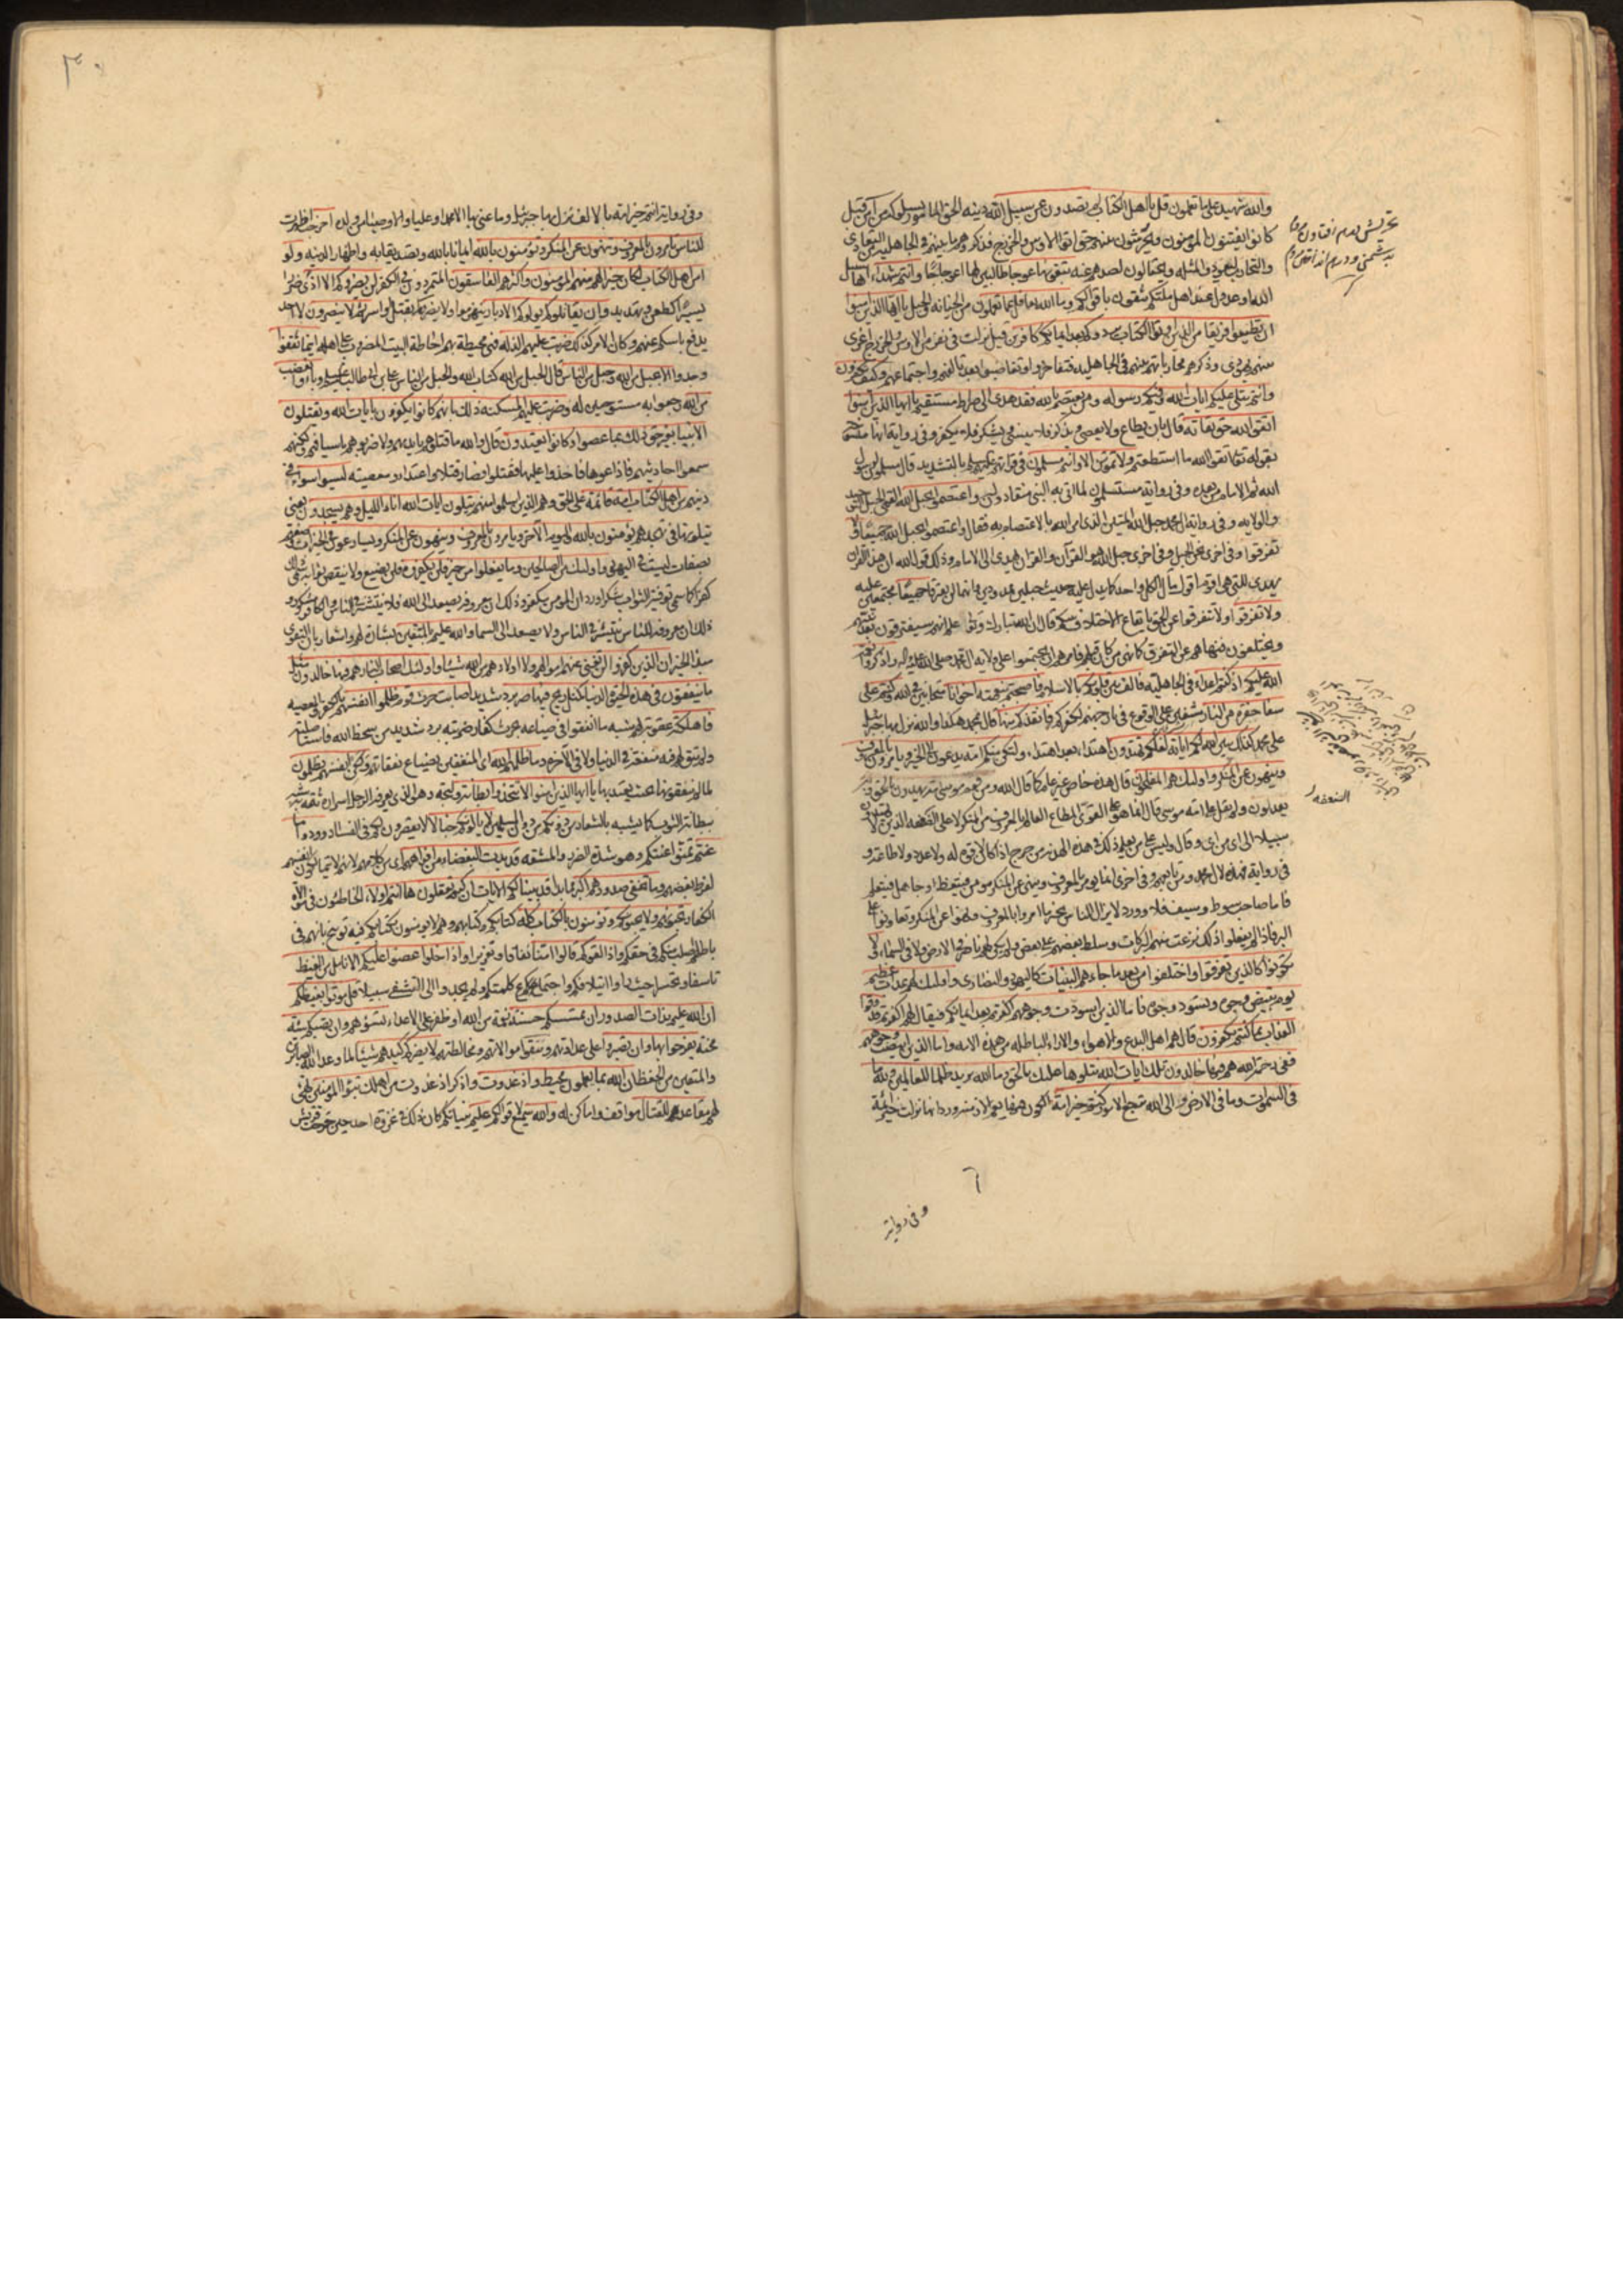 والله شهيد على ما تعملون قل يا اهل الكتاب لم تصدون عن سبيل الله دينه الحق المامور بسلوكه من آمن قيل
كانوا يفتنون المؤمنين ويحرشون بينهم حتى اتوا الاوس والخزرج فذكروهم ما بينهم في الجاهلية من التعادي
والتحارب ليعودوا لمثله ويحتالون لصدهم عنه تبغونها عوجا طالبين لها اعوجاجا وانتم شهداء انها سبيل
الله او عدول عند اهل ملتكم يثقون باقوالكم وما الله بغافل عما تعملون من الخيانة والحيل يا ايها الذين امنوا
ان تطيعوا فريقا من الذين اوتوا الكتاب يردوكم بعد ايمانكم كافرين قيل نزلت في نفر من الاوس والخزرج اغرى
بينهم يهودي وذكرهم محارباتهم بينهم في الجاهلية فتفاخروا وتغاضبوا بعد تالفهم واجتماعهم وكيف تكفرون
وانتم تتلى عليكم ايات الله وفيكم رسوله ومن يعتصم بالله فقد هدى الى صراط مستقيم يا ايها الذين امنوا
اتقوا الله حق تقاته قال بان يطاع ولا يعصى ويذكر فلا ينسى ويشكر فلا يكفر وفي رواية انها
بقوله تعالى اتقوا الله ما استطعتم ولا تموتن الا وانتم مسلمون في قرائتهم بالتشديد قال مسلمون لرسول
الله ثم الامام من بعده وفي رواية مستسلمون لما اتى به النبي منقادون له واعتصموا بحبل الله
والولاية وفي رواية ال محمد حبل الله المتين الذي امر الله بالاعتصام به فقال واعتصموا بحبل الله جميعا ولا
تفرقوا وفي اخرى نحن الحبل وفي اخرى حبل الله هو القرآن والقرآن يهدي الى الامام وذلك قول الله ان هذا القرآن
يهدي للتي هي اقوم اقول مآل الكل واحد كما يدل عليه حديث حبلين
ولا تفرقوا ولا تتفرقوا عن الحق بايقاع الاختلاف بينكم قال ان الله تبارك وتعالى علم انهم سيفترقون بعد نبيهم
ويختلفون فنهاهم عن التفرق كما نهى من كان قبلهم فامرهم ان يجتمعوا على ولاية آل محمد صلى الله عليه واله واذكروا نعمة
الله عليكم اذ كنتم اعداء في الجاهلية فالف بين قلوبكم بالاسلام فاصبحتم بنعمته اخوانا متحابين في الله وكنتم على
شفا حفرة من النار مشفين على الوقوع في نار جهنم لكفركم فانقذكم منها قال محمد هكذا والله نزل بها جبرئيل
على محمد كذلك يبين الله لكم اياته لعلكم تهتدون اهتداء بعد اهتداء ولتكن منكم امة يدعون الى الخير ويامرون بالمعروف
وينهون عن المنكر واولئك هم المفلحون قال هذه خاص غير عام كما قال الله ومن قوم موسى امة يهدون بالحق وبه
يعدلون ولم يقل على امة موسى قال انما هو على القوي المطاع العالم بالمعروف من المنكر لا على الضعفة الذين لا يهتدون
سبيلا الى اي من اي وقال وليس على من يعلم ذلك في هذه الهدنة من حرج اذا كان لا قوة له ولا عدد ولا طاعة و
في رواية فهذه لآل محمد ومن تابعهم وفي اخرى انما يؤمر بالمعروف وينهى عن المنكر مؤمن فيتعظ او جاهل فيتعلم
فاما صاحب سوط وسيف فلا وورد لا يزال الناس بخير ما امروا بالمعروف ونهوا عن المنكر وتعاونوا على
البر فاذا لم يفعلوا ذلك نزعت منهم البركات وسلط بعضهم على بعض ولم يكن لهم ناصر في الارض ولا في السماء ولا
تكونوا كالذين تفرقوا واختلفوا من بعد ما جاءهم البينات كاليهود والنصارى واولئك لهم عذاب عظيم
يوم تبيض وجوه وتسود وجوه فاما الذين اسودت وجوههم اكفرتم بعد ايمانكم فيقال لهم اكفرتم فذوقوا
العذاب بما كنتم تكفرون قال هم اهل البدع والاهواء والاراء الباطلة من هذه الامة واما الذين ابيضت وجوههم
ففي رحمة الله هم فيها خالدون تلك ايات الله نتلوها عليك بالحق وما الله يريد ظلما للعالمين ولله ما
في السموات وما في الارض والى الله ترجع الامور كنتم خير امة الكون فيها يعم الازمنة ورد انها نزلت خير ائمة
وفي رواية
الضعفة
٣٠
وفي رواية انتم خير امة بالالف نزل بها جبرئيل وما عنى بها الا محمدا وعليا والاوصياء من ولده اخرجت اظهرت
للناس تامرون بالمعروف وتنهون عن المنكر وتؤمنون بالله ايمانا بالله وتصديقا به واظهارا لدينه ولو
امن اهل الكتاب لكان خيرا لهم منهم المؤمنون واكثرهم الفاسقون المتمردون في الكفر لن يضروكم الا اذى ضررا
يسيرا كطعن وتهديد وان يقاتلوكم يولوكم الادبار ينهزموا ولا يضروكم بقتل واسر ثم لا ينصرون لا احد
يدفع باسكم عنهم وكان الامر كذلك ضربت عليهم الذلة فهي محيطة بهم احاطة البيت المضروب على اهله اينما ثقفوا
وجدوا الا بحبل من الله وحبل من الناس قال الحبل من الله كتاب الله والحبل من الناس علي بن ابي طالب وباؤا بغضب
من الله رجعوا به مستوجبين له وضربت عليهم المسكنة ذلك بانهم كانوا يكفرون بايات الله ويقتلون
الانبياء بغير حق ذلك بما عصوا وكانوا يعتدون قال والله ما قتلوهم بايديهم ولا ضربوهم باسيافهم ولكنهم
سمعوا احاديثهم فاذاعوها فاخذوا عليها فقتلوا فصار قتلا واعتداء ومعصية ليسوا سواء في
دينهم من اهل الكتاب امة قائمة على الحق وهم الذين اسلموا منهم يتلون ايات الله اناء الليل وهم يسجدون يعني
يتلونها في تهجدهم يؤمنون بالله واليوم الآخر ويامرون بالمعروف وينهون عن المنكر ويسارعون في الخيرات وصفهم
بصفات ليست في اليهود واولئك من الصالحين وما يفعلوا من خير فلن يكفروه فلن يضيع ولا ينقص ثوابه سمي ذلك
كفرانا كما سمي توفية الثواب شكرا ورد ان المؤمن مكفر وذلك ان معروفه يصعد الى الله فلا ينتشر في الناس والكافر مشكور
ذلك ان معروفه للناس ينتشر في الناس ولا يصعد الى السماء والله عليم بالمتقين بشارة لهم واشعار بان التقوى
مبدأ الخير ان الذين كفروا لن تغني عنهم اموالهم ولا اولادهم من الله شيئا واولئك اصحاب النار هم فيها خالدون مثل
ما ينفقون في هذه الحيوة الدنيا كمثل ريح فيها صر برد شديد اصابت حرث قوم ظلموا انفسهم بالكفر والمعصية
فاهلكته عقوبة لهم شبه ما انفقوا في ضياعه بحرث كفار ضربته برد شديد من سخط الله فاستاصلته
ولم يبق لهم فيه منفعة في الدنيا ولا في الآخرة وما ظلمهم الله اي المنفقين بضياع نفقاتهم ولكن انفسهم يظلمون
لما لم ينفقوها بحيث يعتد بها يا ايها الذين امنوا لا تتخذوا بطانة وليجة وهو الذي يعرفه الرجل اسراره ثقة به شبه
ببطانة الثوب كما يشبه بالشعار من دونكم من دون المسلمين لا يالونكم خبالا لا يقصرون لكم في الفساد ودوا ما
عنتم تمنوا عنتكم وهو شدة الضرر والمشقة قد بدت البغضاء من افواههم اي من كلامهم لانهم لا يتمالكون انفسهم
لفرط بغضهم وما تخفي صدورهم اكبر مما بدا قد بينا لكم الايات ان كنتم تعقلون ها انتم اولاء الخاطئون في موالاة
الكفار تحبونهم ولا يحبونكم وتؤمنون بالكتاب كله كتابكم وكتابهم وهم لا يؤمنون بكتابكم فيه توبيخ بانهم في
باطلهم اصلب منكم في حقكم واذا لقوكم قالوا امنا نفاقا وتغريرا واذا خلوا عضوا عليكم الانامل من الغيظ
تاسفا وتحسرا حيث راوا ائتلافكم واجتماع كلمتكم ولم يجدوا الى التشفي سبيلا قل موتوا بغيظكم
ان الله عليم بذات الصدور ان تمسسكم حسنة نعمة من الله او ظفر على الاعداء تسؤهم وان تصبكم سيئة
محنة يفرحوا بها وان تصبروا على عداوتهم وتتقوا موالاتهم ومخالطتهم لا يضركم كيدهم شيئا لما وعد الله الصابرين
والمتقين من الحفظ ان الله بما يعملون محيط واذ غدوت واذكر اذ غدوت من اهلك تبوئ المؤمنين تهيئ
لهم مقاعد للقتال مواقف واماكن له والله سميع لاقوالكم عليم بنياتكم كان ذلك في غزوة احد حين خرجت قريش